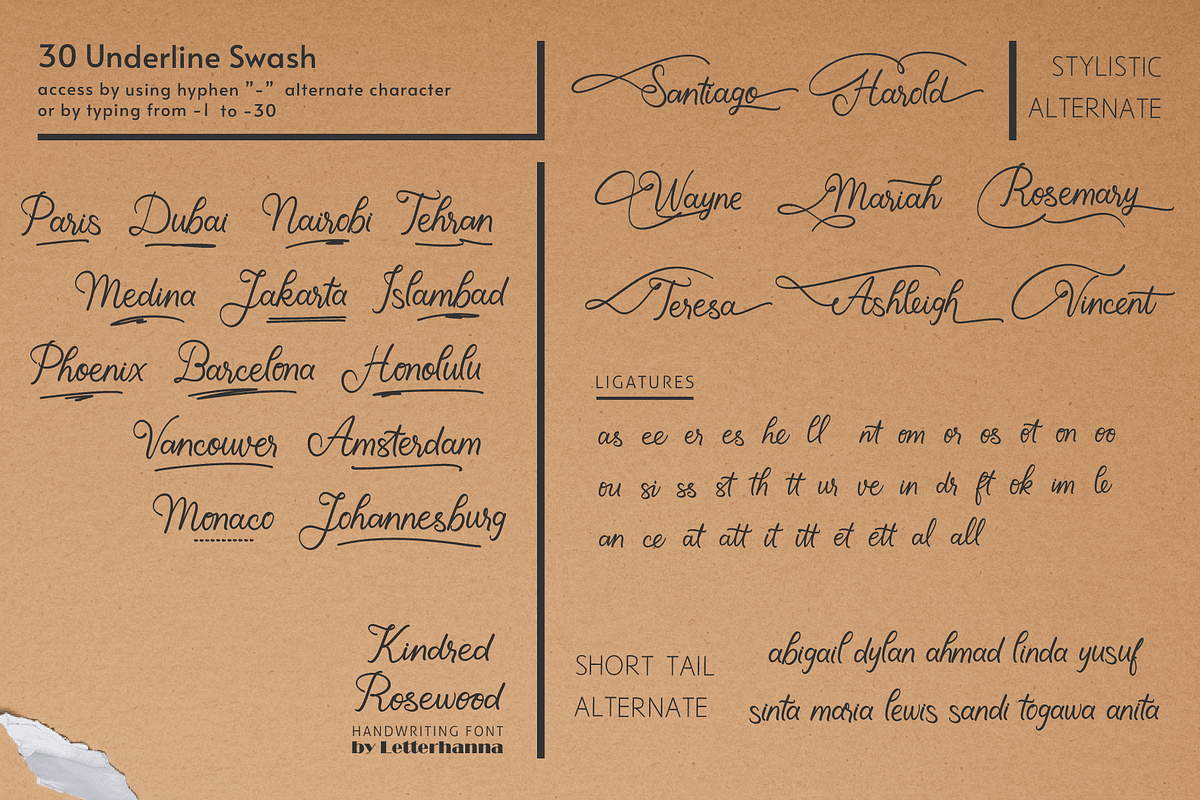 30 Underline Swash
access by using hyphen "-" alternate character
or by typing from -1 to -30
Paris Dubai Nairobi Tehran
Medina Jakarta Islambad
Phoenix Barcelona Honolulu
Vancouver Amsterdam
Monaco Johannesburg
Kindred
Rosewood
HANDWRITING FONT
by Letterhanna
Santiago Harold
STYLISTIC
ALTERNATE
Wayne Mariah Rosemary
Teresa Ashleigh Vincent
LIGATURES
as ee er es he ll nt om or os ot on oo
ou si ss st th tt ur ve in dr ft ok im le
an ce at att it itt et ett al all
SHORT TAIL
ALTERNATE
abigail dylan ahmad linda yusuf
sinta maria lewis sandi togawa anita